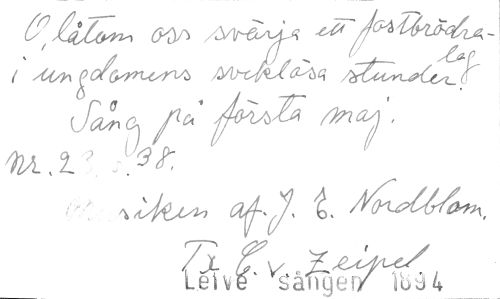 O, låtom oss svärja ett fostbrödra-
lag
i ungdomens sveklösa stunder.
Sång på första maj.
Nr. 23, s. 38.
Musiken af. J. E. Nordblom.
Tx C. v. Zeipel
Leive sången 1894